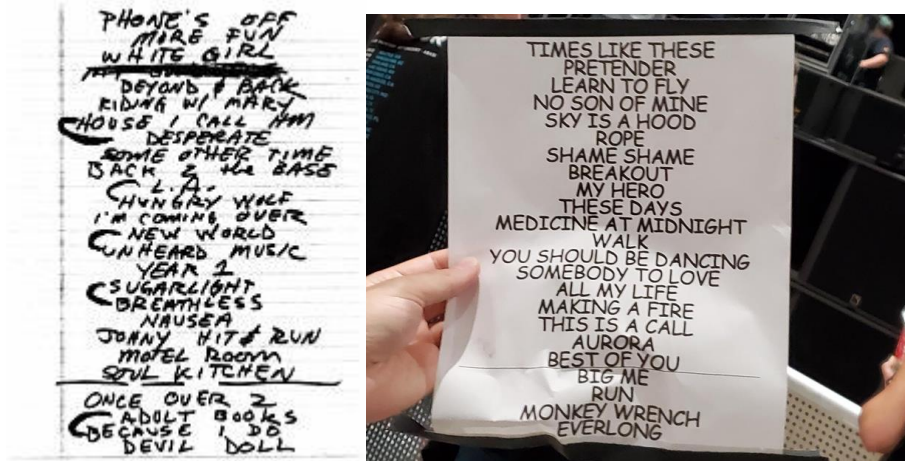 PHONE'S OFF
MORE FUN
WHITE GIRL
BEYOND & BACK
RIDING W/ MARY
HOUSE I CALL HM
DESPERATE
SOME OTHER TIME
BACK 2 the BASE
L.A.
HUNGRY WOLF
I'M COMING OVER
NEW WORLD
UNHEARD MUSIC
YEAR 1
SUGARLIGHT
BREATHLESS
NAUSEA
JOHNY HIT & RUN
MOTEL ROOM
SOUL KITCHEN
ONCE OVER 2
ADULT BOOKS
BECAUSE I DO
DEVIL DOLL
TIMES LIKE THESE
PRETENDER
LEARN TO FLY
NO SON OF MINE
SKY IS A HOOD
ROPE
SHAME SHAME
BREAKOUT
MY HERO
THESE DAYS
MEDICINE AT MIDNIGHT
WALK
YOU SHOULD BE DANCING
SOMEBODY TO LOVE
ALL MY LIFE
MAKING A FIRE
THIS IS A CALL
AURORA
BEST OF YOU
BIG ME
RUN
MONKEY WRENCH
EVERLONG